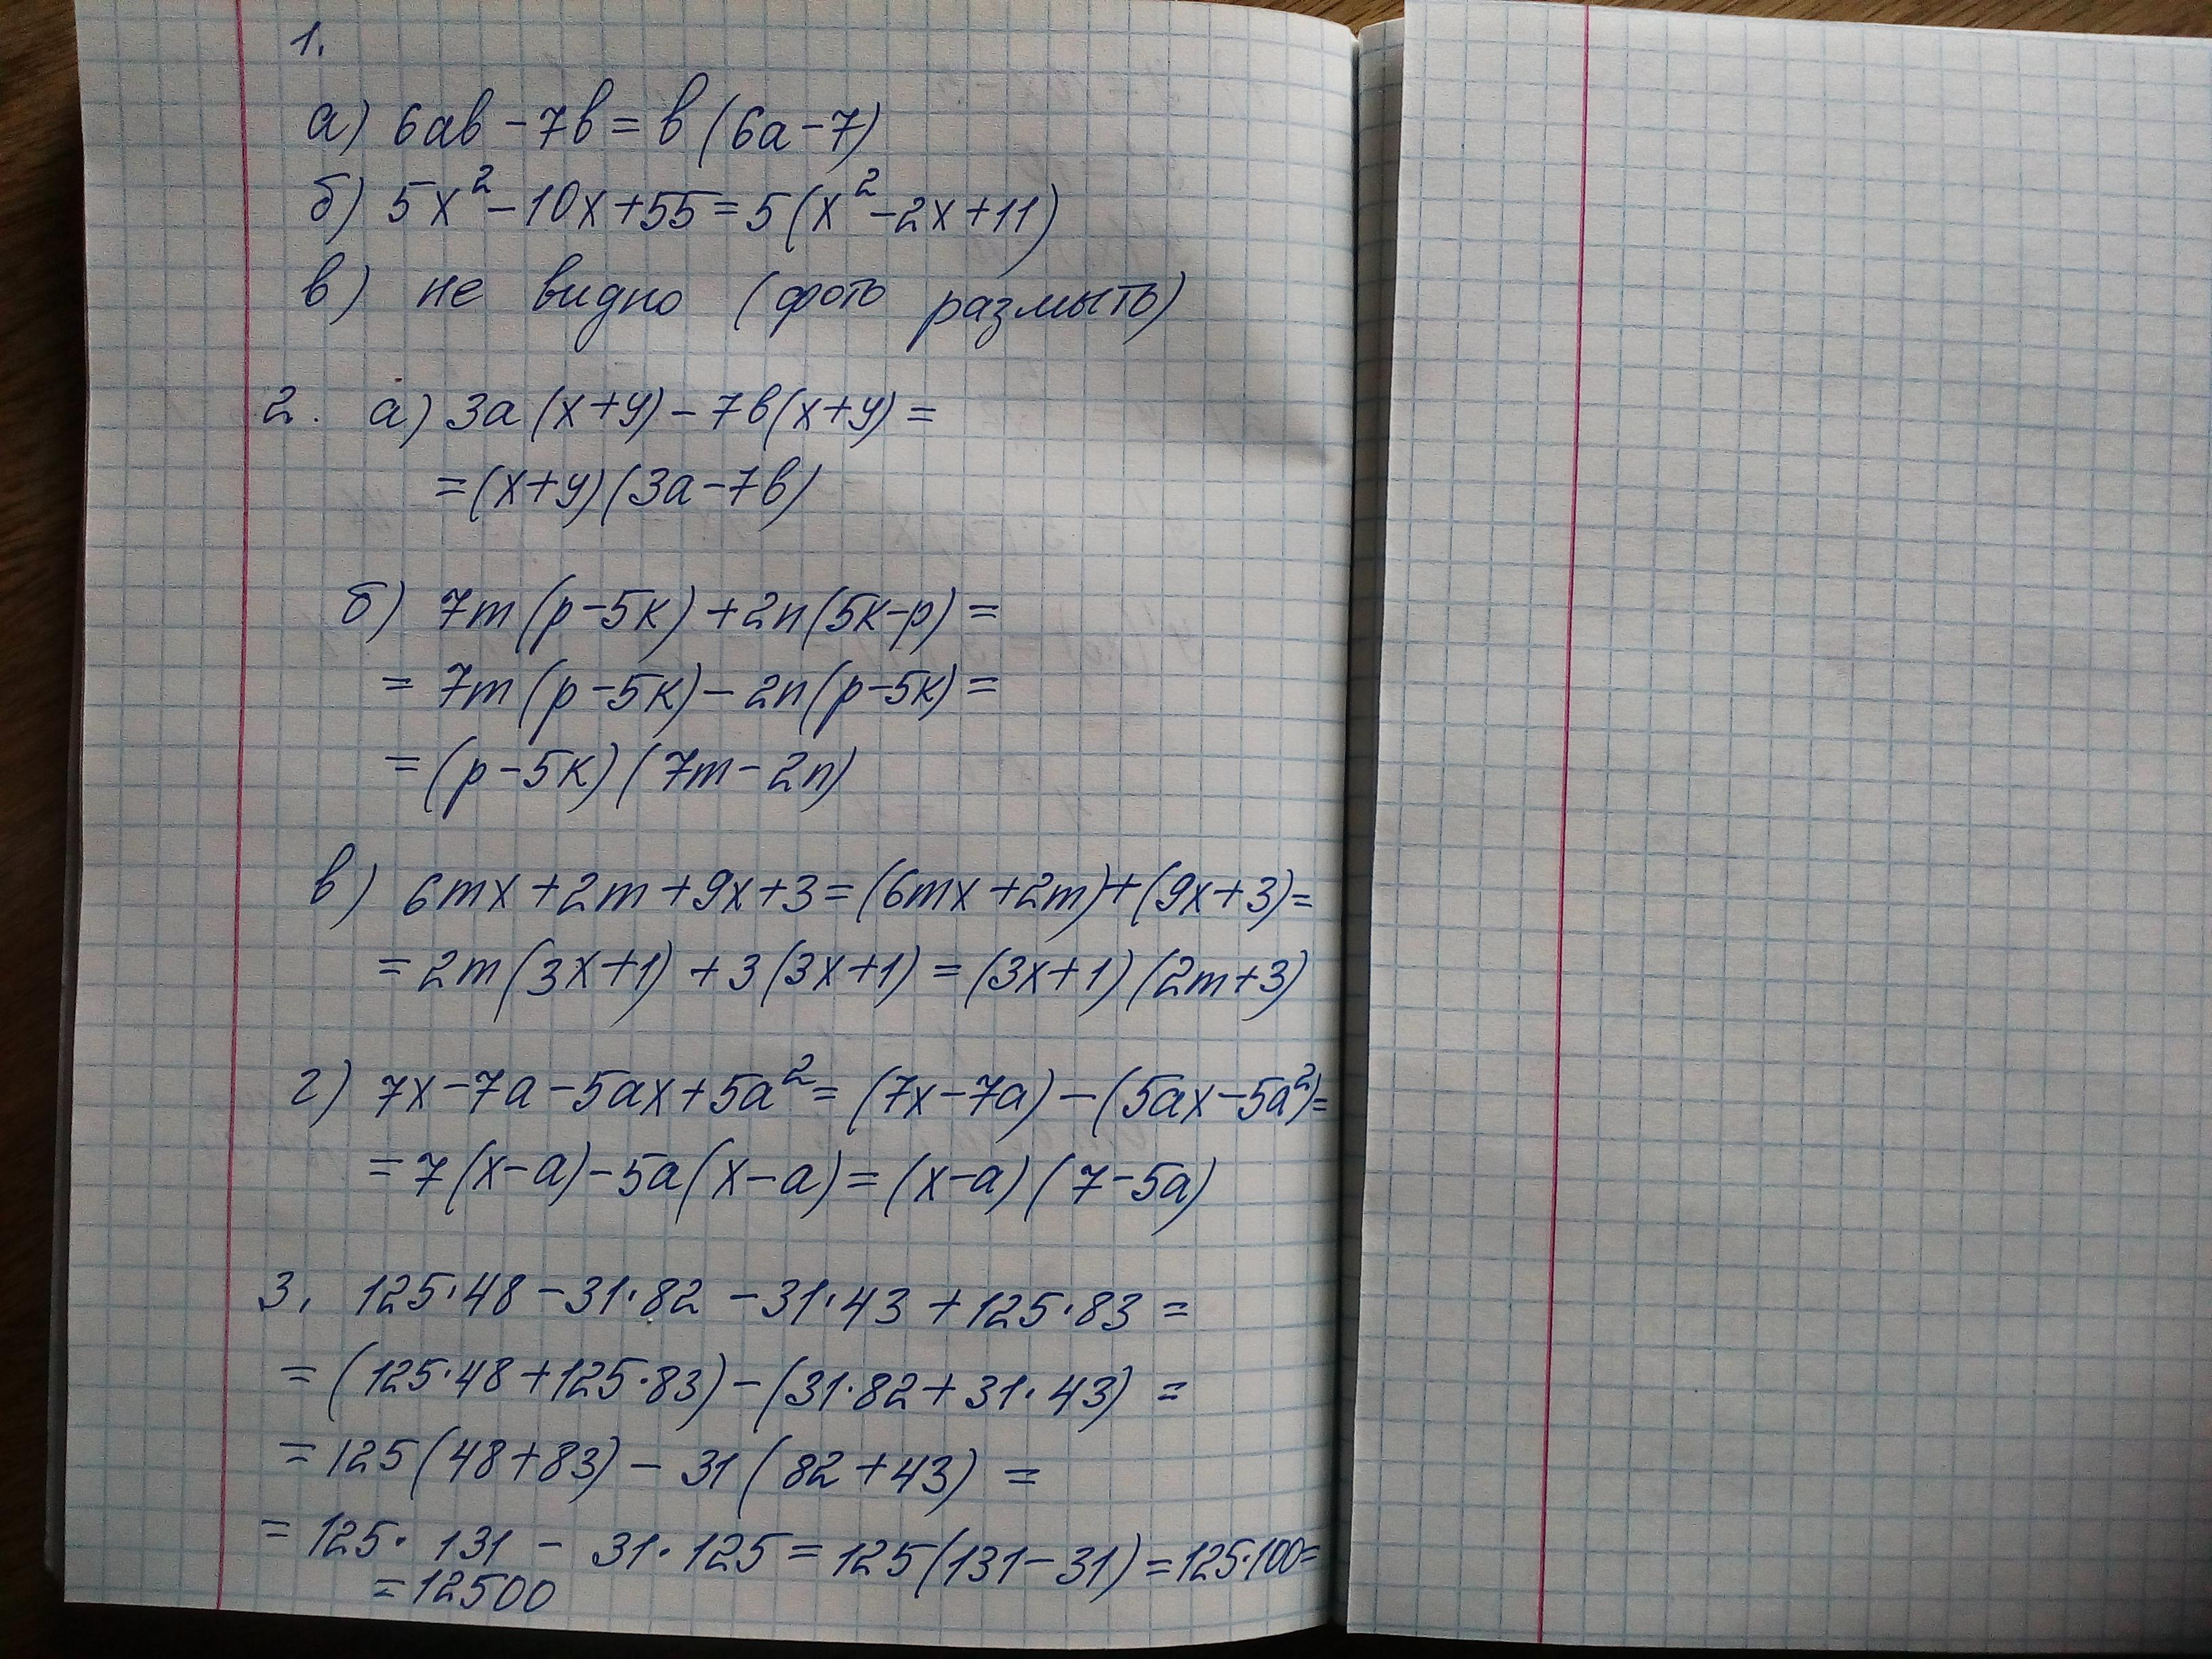 1.
а) 6ab - 7b = b (6a - 7)
б) 5x² - 10x + 55 = 5 (x² - 2x + 11)
в) не видно (фото размыто)
2. а) 3a (x+y) - 7b (x+y) =
= (x+y) (3a - 7b)
б) 7m (p - 5k) + 2n (5k - p) =
= 7m (p - 5k) - 2n (p - 5k) =
= (p - 5k) (7m - 2n)
в) 6mx + 2m + 9x + 3 = (6mx + 2m) + (9x + 3) =
= 2m (3x + 1) + 3 (3x + 1) = (3x + 1) (2m + 3)
г) 7x - 7a - 5ax + 5a² = (7x - 7a) - (5ax - 5a²) =
= 7 (x - a) - 5a (x - a) = (x - a) (7 - 5a)
3. 125·48 - 31·82 - 31·43 + 125·83 =
= (125·48 + 125·83) - (31·82 + 31·43) =
= 125 (48 + 83) - 31 (82 + 43) =
= 125· 131 - 31·125 = 125 (131 - 31) = 125·100 =
= 12500